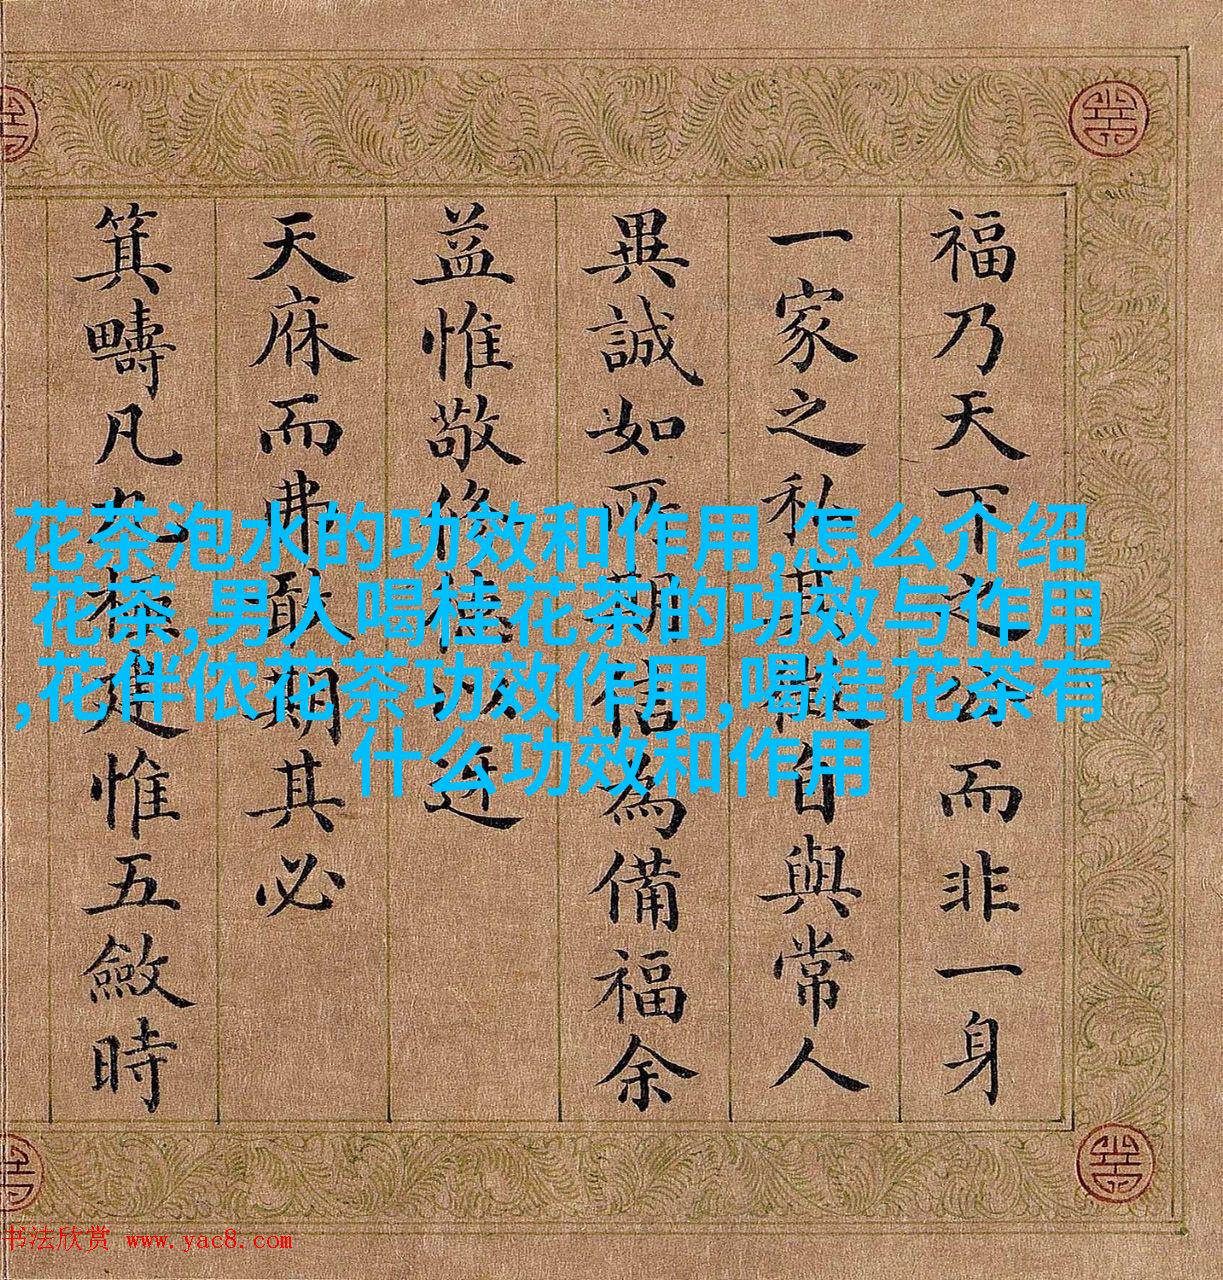 福乃天下之公而非一身
一家之私其自與常人
異誠如所期信為備福余
益惟敬修以迓
天庥而弗敢期其必
箕疇凡九極建惟五斂時
花茶泡水的功效和作用,怎么介绍
花茶,男人喝桂花茶的功效与作用
,花伴侬花茶功效作用,喝桂花茶有
什么功效和作用
书法欣赏 www.yac8.com